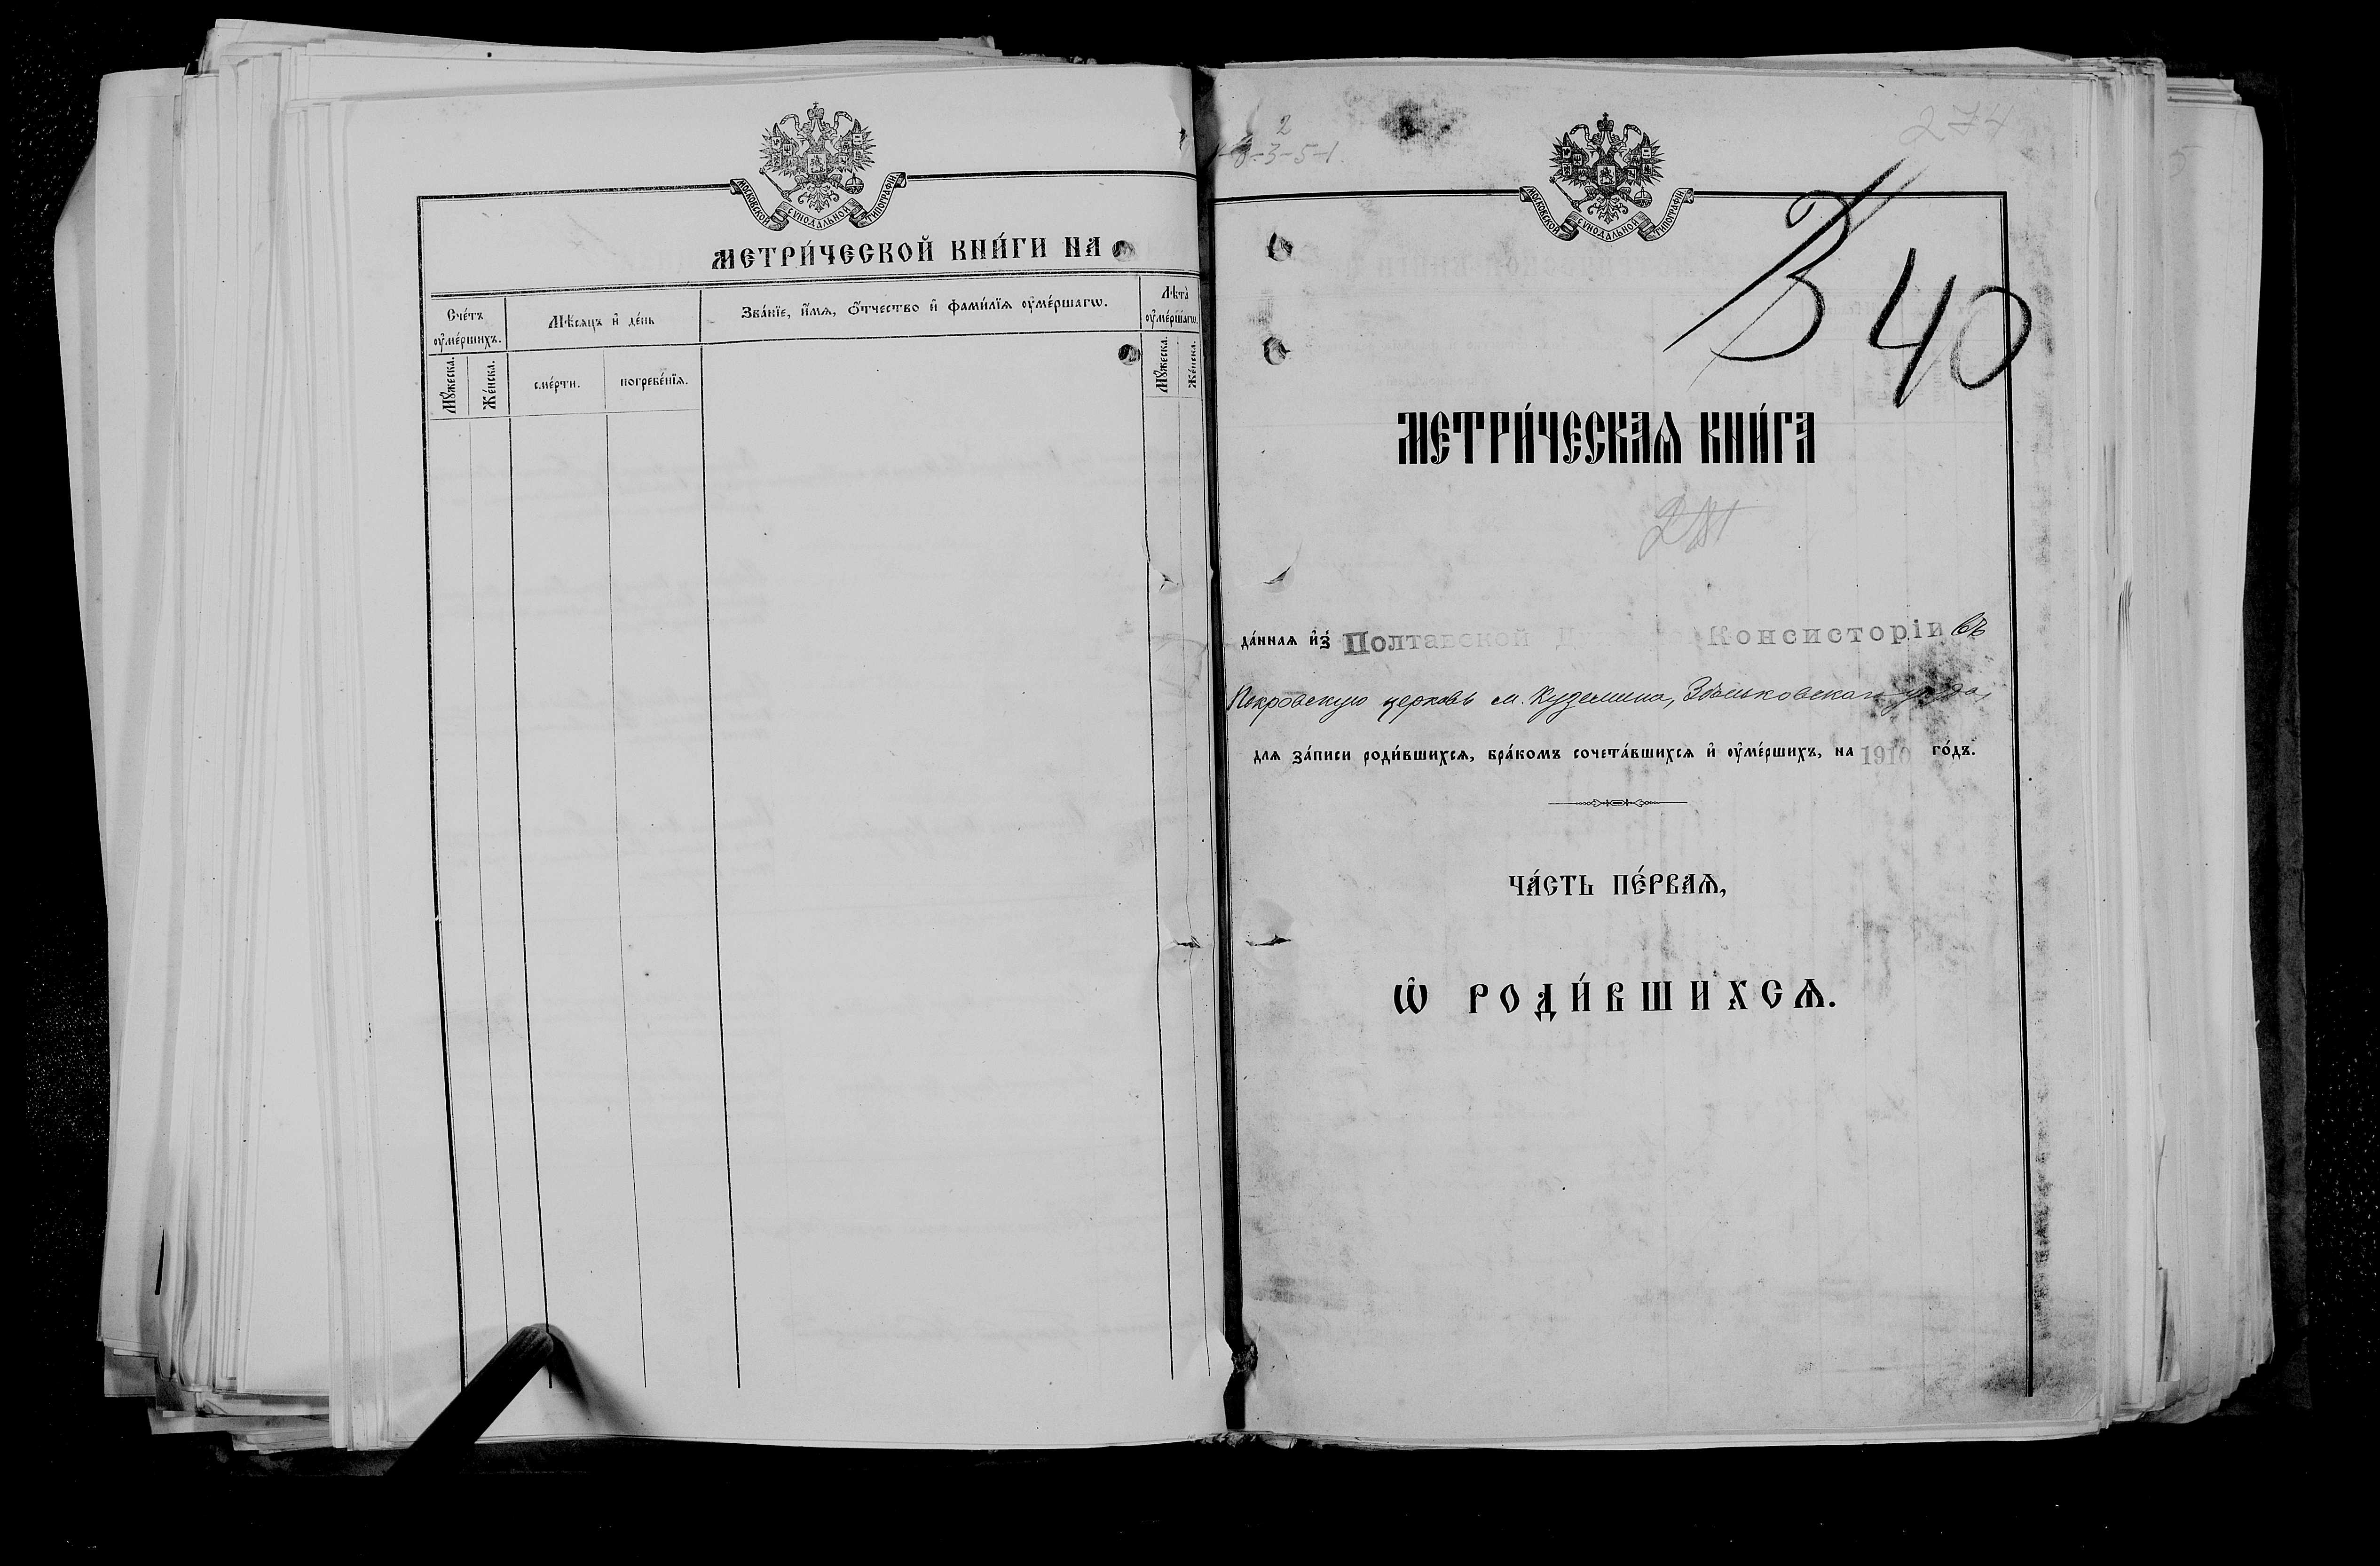 МОСКОВСКОЙ СУНОДАЛЬНОЙ ТИПОГРАФІИ
МЕТРИ́ЧЕСКОЙ КНИ́ГИ НА
Сче́тъ оу҆ме́ршихъ.
Мѣ́сяцъ и҆ де́нь
Зва́нїе, и҆́мѧ, ѻ҆́тчество и҆ фами́лїѧ оу҆ме́ршагѡ.
Лѣ́та оу҆ме́ршагѡ.
Мꙋ́жеска.
Же́нска.
сме́рти.
погребе́нїѧ.
Мꙋ́жеска.
Же́нска.
2
-3-5-1
274
МОСКОВСКОЙ СУНОДАЛЬНОЙ ТИПОГРАФІИ
40
МЕТРИ́ЧЕСКАѦ КНИ́ГА
да́ннаѧ и҆з̾ Полтавской Консисторіи въ
Покровскую церковь м. Куземина, Зѣньковскаго уѣзда,
для за́писи роди́вшихсѧ, бра́комъ сочета́вшихсѧ и҆ оу҆ме́ршихъ, на 1910 го́дъ.
ЧА́СТЬ ПЕ́РВАѦ,
Ѽ РОДИ́ВШИХСѦ.